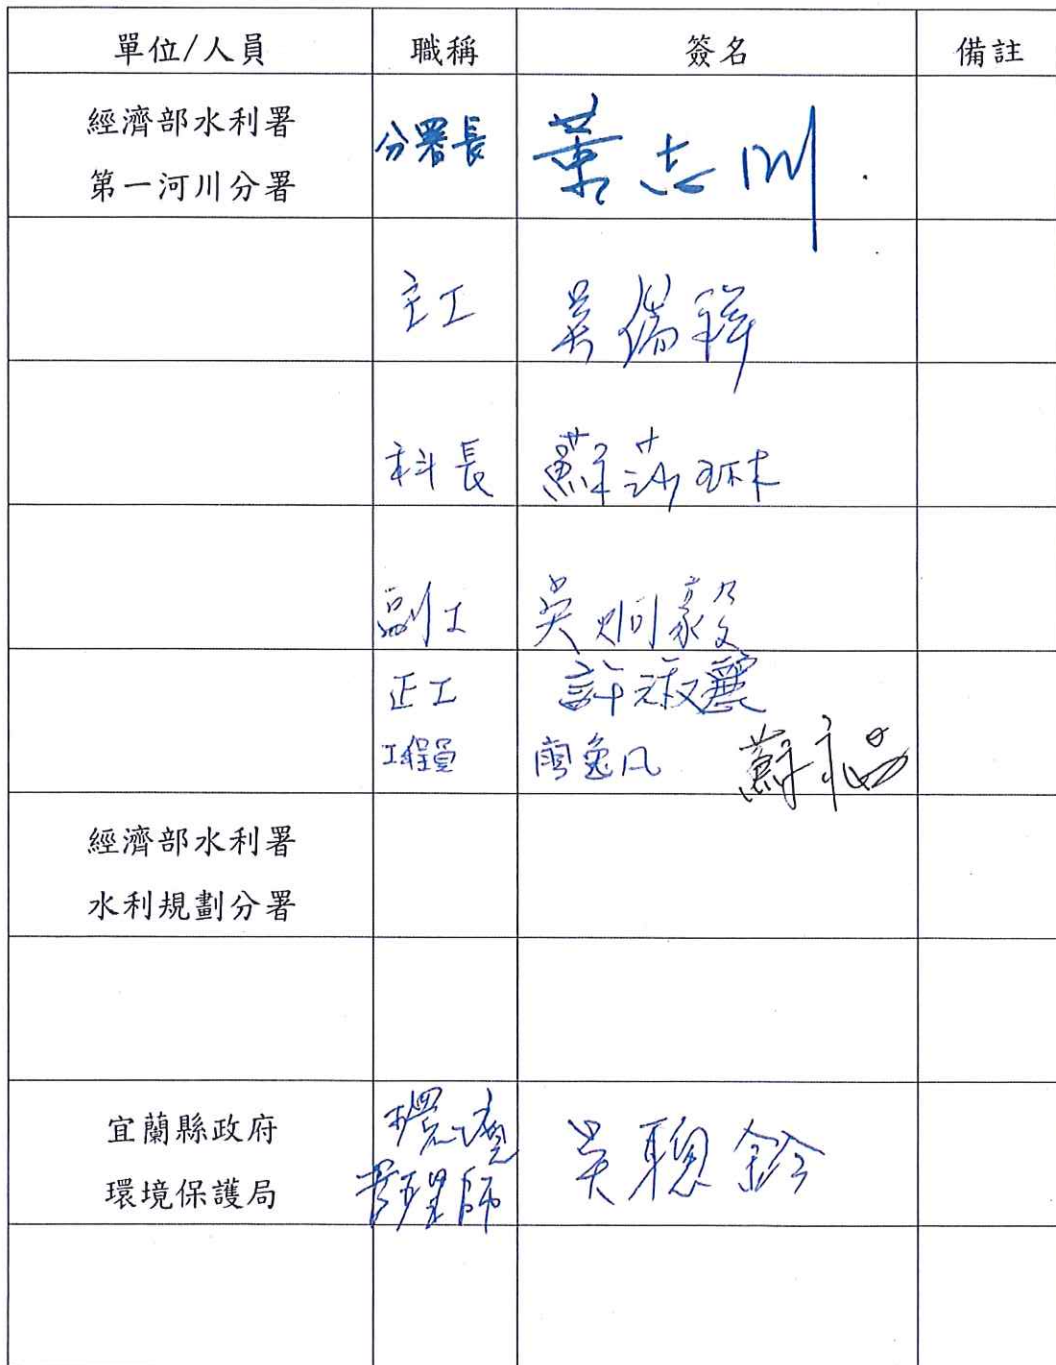 單位/人員 職稱 簽名 備註
經濟部水利署
第一河川分署
分署長 董志剛
主工 吳
科長 蘇莎琳
副工 吳炯毅
正工 許淑麗
工程員 廖逸凡 蘇
經濟部水利署
水利規劃分署
宜蘭縣政府
環境保護局
環境
管理師
吳聰鈴